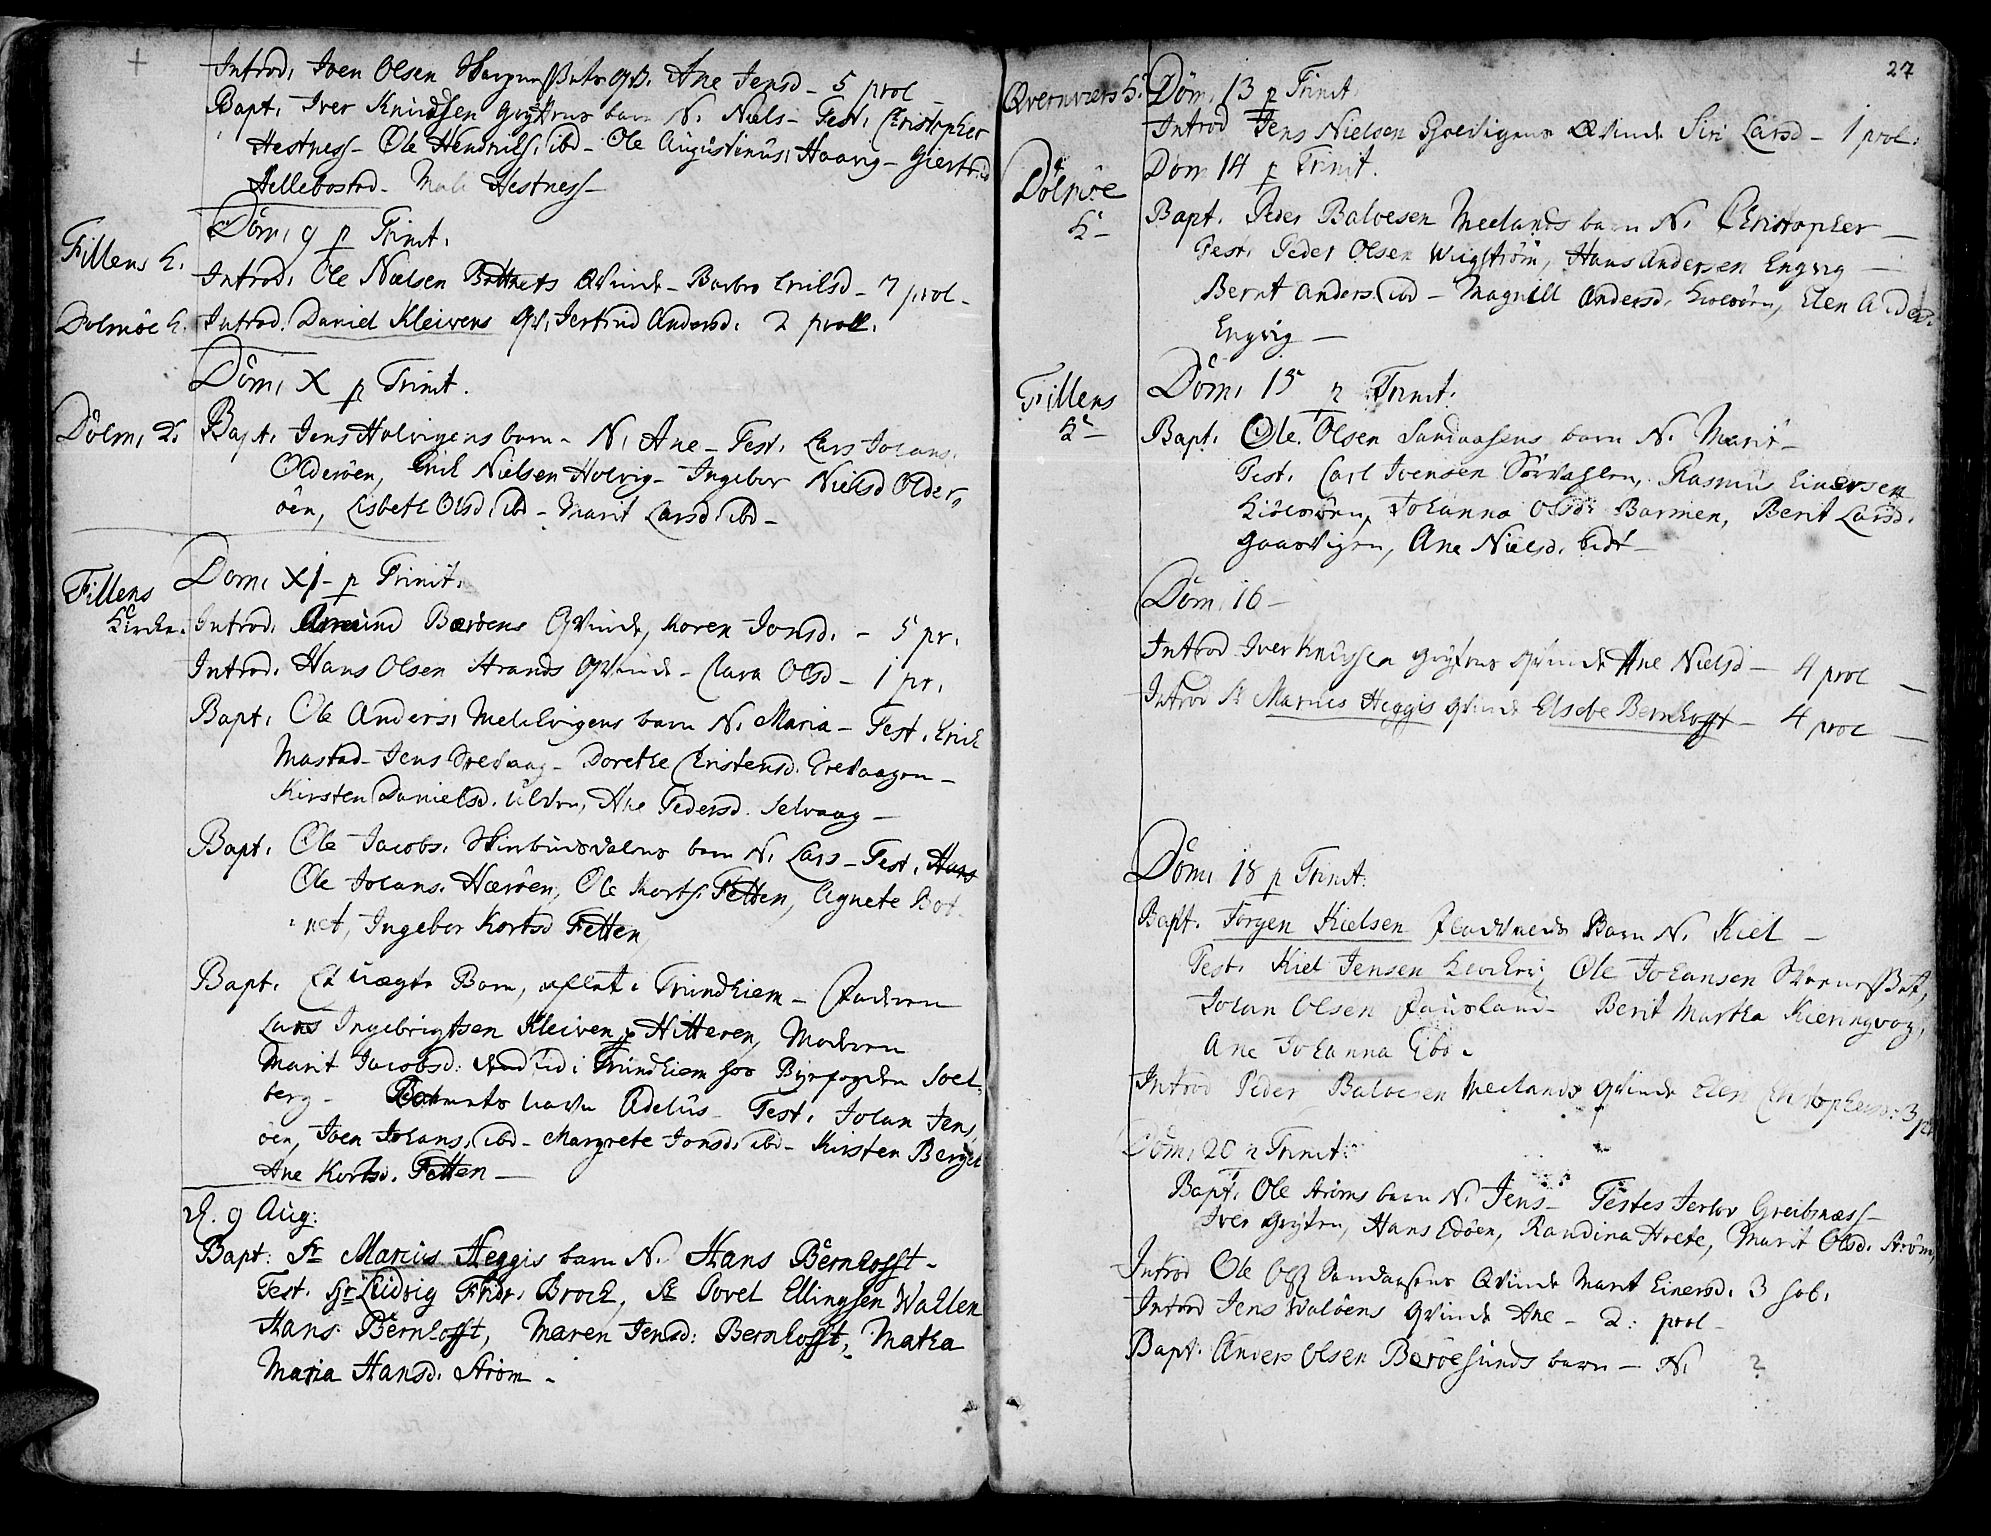 Introd. Joen Olsen QV. Ane Jensd - 5 prol -
Bapt. Iver Knudsen Gryttens barn N. Niels - Test. Christopher
Hestness - Ole Hendrichs. ibd - Ole Augustinus. Haavig - Giertrud
Hellebostad - Mali Hestness -
Dom. 9 p Trinit.
Fillens K. Introd. Ole Nielsen Qvinde - Barbro Erilsd - 7 prol -
Dolmöe K. Introd. Daniel Kleivens QV. Jertrud Andersd. 2 proll.
Dom. X p Trinit.
Dolm. K. Bapt. Jens Holvigens barn - N. Ane - Test. Lars Johans.
Olderöen, Erich Nielsen Holvig - Ingebor Nielsd Older,
öen, Lisbeth Olsd. ibd - Marit Larsd. ibd -
Dom. XI - p Trinit.
Fillens Kircke. Introd. Amund Beröens Qvinde, Karen Jonsd. - 5 pr.
Introd. Hans Olsen Strands Qvinde - Clara Olsd - 1 pr.
Bapt. Ole Anders. barn N. Maria - Test. Erich
Mastad - Jens - Dorethe Christensd.
Kirsten Danielsd. Ulven, Ane Pedersd. Selvaag -
Bapt. Ole Jacobs. barn N. Lars - Test. Hans
Ole Johans. Hæröen, Ole Korts. Fetten, Agnete Bot-
net, Ingebor Kortsd Fetten,
Bapt. Et uægte Barn, aflet i Trundhiem - Faderen
Lars Ingebrigtsen Kleiven p Hitteren, Moderen
Marit Jacobsd. i Trundhiem hos Byefogden Soel-
berg - Barnets navn Adelus - Test. Johan Jens
öen, Joen Johans. ibd - Margrete Jonsd. ibd - Kirsten Berget
Ane Kortsd. Fetten -
d. 9 Aug:
Bapt: Sr Marcus Heggis barn N. Hans Bernhofft -
Test. Hr Ludvig Fridr. Broch, Sr Povel Ellingsen Wahlen
Hans Bernhofft, Maren Jensd: Bernhofft, Matha
Maria Hansd. Ström -
27
Qvernvæers K. Dom. 13 p Trinit.
Introd Jens Nielsen Qvinde Siri Larsd - 1 prol:
Dolmöe K - Dom 14 p Trinit.
Bapt. Peder Balvesen Meelands barn N. Christopher -
Test. Peder Olsen Wiigström, Hans Andersen Engvig -
Bernt Anders. ibd - Magnill Andersd. Kiolsöen, Elen Andersd.
Engvig -
Fillens K - Dom. 15 p Trinit.
Bapt. Ole Olsen Sandaasens barn N. Marit -
Test. Carl Joensen Sörvahlen, Rasmus Einersen
Kiölsöen, Johanna Olsd. Barmen, Berit Larsd.
Gaasvigen, Ane Nielsd. -
Dom. 16 -
Introd Iver Knudsen Gryttens Qvinde Ane Nielsd - 4 prol -
Introd Sr Marcus Heggis Qvinde Elsebe Bernhofft - 4 prol -
Dom. 18 p Trinit:
Bapt. Jörgen Kielsen Barn N. Kiel -
Test. Kiel Jensen, Ole Johansen
Johan Olsen - Berit Martha Kieringvog,
Ane Johanna ibd.
Introd Peder Balvesen Meelands Qvinde Elen Christophersd: 3 pr
Dom. 20 p Trinit:
Bapt. Ole Ströms barn N. Jens - Testes Greibsnæss -
Iver Grytten, Hans Edöen, Randina, Marit Olsd. Ström,
Introd Ole Ols Sandaasens Qvinde Marit Einersd. 3 sol.
Introd Jens Valöens Qvinde Ane - 2: prol -
Bapt. Anders Olsen Beröesunds barn - N. ?